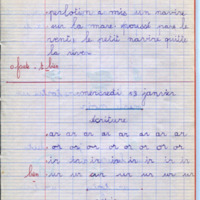 perlotion a mis son navire
sur la mare: poussé par le
vent; le petit navire quitte
la rive.
mercredi 19 janvier
écriture
ar ar ar ar ar ar ar
or or or or or or or
ir ir ir ir ir ir
bien ur ur our ur ur ur ur